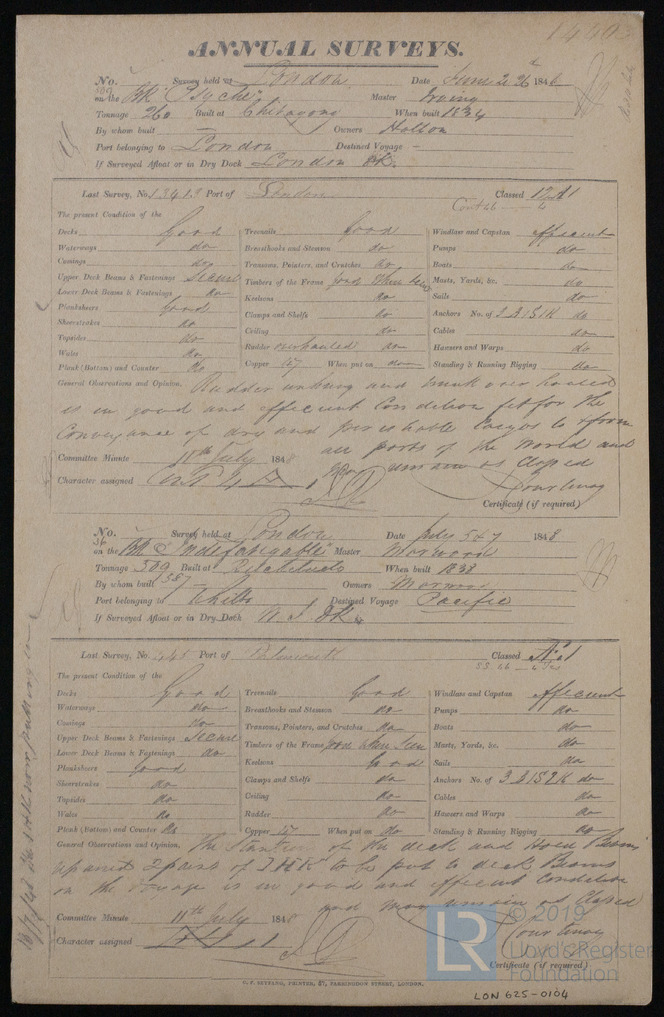 ANNUAL SURVEYS.
No. Survey held at London Date June 2 26 184
on the Bk "Psyche" Master Irving
Tonnage 260 Built at Chitagong When built 1834
By whom built — Owners Hallon
Port belonging to London Destined Voyage —
If Surveyed Afloat or in Dry Dock London Dk.
Last Survey, No. 13413 Port of London Classed 12 A1
The present Condition of the
Decks Good Treenails Good Windlass and Capstan efficient
Waterways do Breasthooks and Stemson do Pumps do
Comings do Transoms, Pointers, and Crutches do Boats do
Upper Deck Beams & Fastenings Secure Timbers of the Frame good when seen Masts, Yards, &c. do
Lower Deck Beams & Fastenings do Keelsons do Sails do
Planksheers Good Clamps and Shelfs do Anchors No. of 3 B 1 S 1 K do
Sheerstrakes do Ceiling do Cables do
Topsides do Rudder overhauled do Hawsers and Warps do
Wales do Copper 47 When put on do Standing & Running Rigging do
Plank (Bottom) and Counter do
General Observations and Opinion, Rudder unhung and trunk overhauled
is in good and efficient Condition fit for the
Conveyance of dry and perishable Cargos to & from
all parts of the World and
may remain as Classed
Committee Minute 11th July 1848
Character assigned
Certificate (if required)
No. Survey held at London Date July 5 & 7 1848
on the Bk "Indefatigable" Master Morwood
Tonnage 509 Built at When built 1838
587
By whom built — Owners
Port belonging to Whitby Destined Voyage Pacific
If Surveyed Afloat or in Dry Dock W. I. Dk.
Last Survey, No. Port of Classed A1
The present Condition of the
Decks Good Treenails Good Windlass and Capstan efficient
Waterways do Breasthooks and Stemson do Pumps do
Comings do Transoms, Pointers, and Crutches do Boats do
Upper Deck Beams & Fastenings Secure Timbers of the Frame good when seen Masts, Yards, &c. do
Lower Deck Beams & Fastenings do Keelsons Good Sails do
Planksheers Good Clamps and Shelfs do Anchors No. of 3 B 1 S 2 K do
Sheerstrakes do Ceiling do Cables do
Topsides do Rudder do Hawsers and Warps do
Wales do Copper 47 When put on do Standing & Running Rigging do
Plank (Bottom) and Counter do
General Observations and Opinion, The Stantions of the deck and Hold Beams
2 pairs of I H K to be put to deck Beams
on the Voyage is in good and efficient Condition
and may remain as Classed
Committee Minute 11th July 1848
Character assigned
Certificate (if required)
LONDON.
© 2019
LR Lloyd's Register
Foundation
LON 625-0104